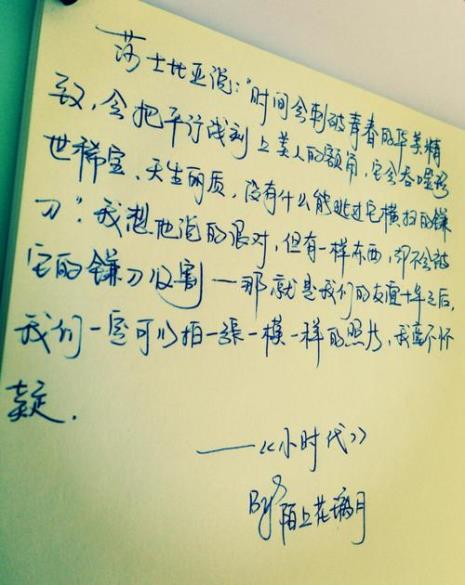 莎士比亚说："时间会刺破青春的华美精
致，会把平行线刻上美人的额角，它会吞噬稀
世稀宝，天生丽质，没有什么能逃过它横扫的镰
刀"。我想他说的很对，但有一样东西，却不会被
它的镰刀收割——那就是我们的友谊十年之后，
我们一定可以拍一张一模一样的照片，我毫不怀
疑.
——《小时代》
By 陌上花满月